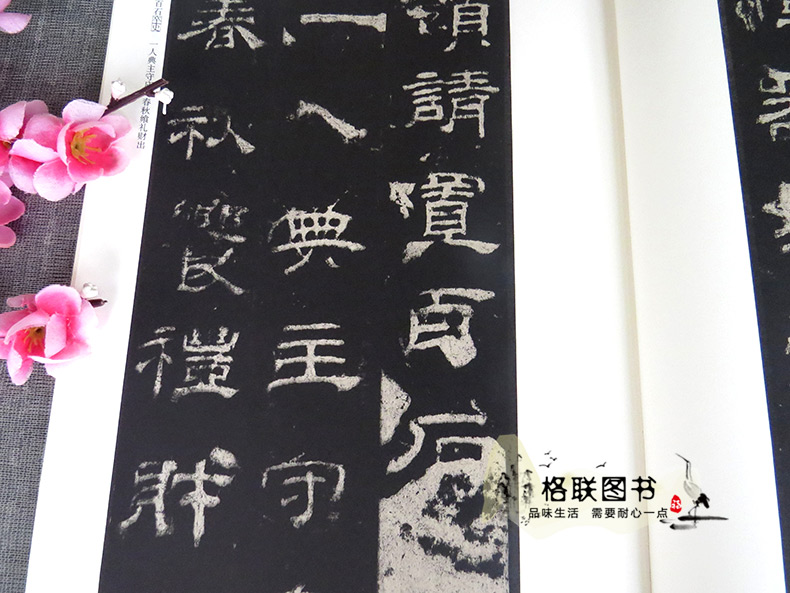 領請置百石
一人典主守
春秋饗禮財
百石卒史 一人典主守 春秋飨礼财出
格联图书
品味生活 需要耐心一点